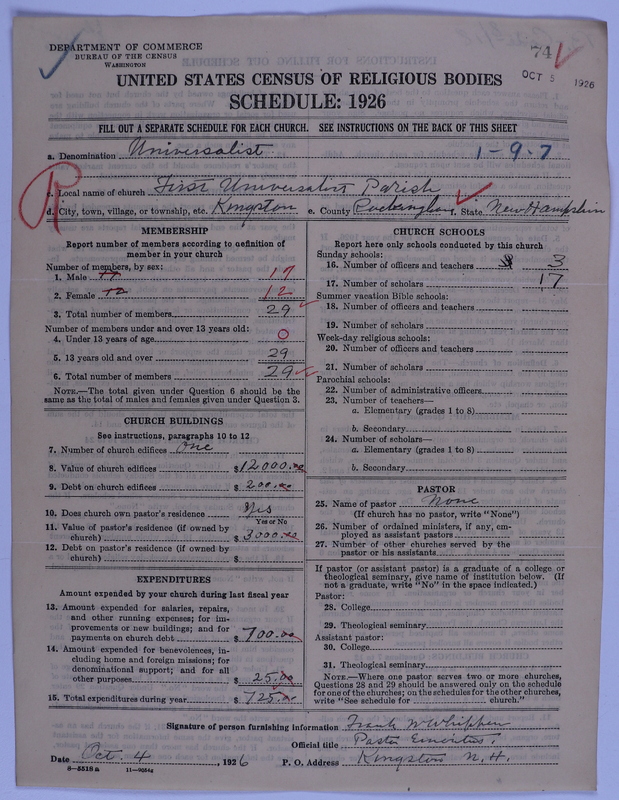 DEPARTMENT OF COMMERCE
BUREAU OF THE CENSUS
WASHINGTON
74
OCT 5 1926
UNITED STATES CENSUS OF RELIGIOUS BODIES
SCHEDULE: 1926
FILL OUT A SEPARATE SCHEDULE FOR EACH CHURCH. SEE INSTRUCTIONS ON THE BACK OF THIS SHEET
a. Denomination Universalist 1-9-7
R
c. Local name of church First Universalist Parish
d. City, town, village, or township, etc. Kingston e. County Rockingham f. State New Hampshire
MEMBERSHIP
Report number of members according to definition of
member in your church
Number of members, by sex:
1. Male 17
2. Female 12
3. Total number of members 29
Number of members under and over 13 years old:
4. Under 13 years of age 0
5. 13 years old and over 29
6. Total number of members 29
NOTE.—The total given under Question 6 should be the
same as the total of males and females given under Question 3.
CHURCH BUILDINGS
See instructions, paragraphs 10 to 12
7. Number of church edifices One
8. Value of church edifices $12000.00
9. Debt on church edifices $ 200.00
10. Does church own pastor's residence? Yes
Yes or No
11. Value of pastor's residence (if owned by
church) $ 3000.00
12. Debt on pastor's residence (if owned by
church) $
EXPENDITURES
Amount expended by your church during last fiscal year
13. Amount expended for salaries, repairs,
and other running expenses; for im-
provements or new buildings; and for
payments on church debt $ 700.00
14. Amount expended for benevolences, in-
cluding home and foreign missions; for
denominational support; and for all
other purposes $ 25.00
15. Total expenditures during year $ 725.00
CHURCH SCHOOLS
Report here only schools conducted by this church
Sunday schools:
16. Number of officers and teachers 3
17. Number of scholars 17
Summer vacation Bible schools:
18. Number of officers and teachers
19. Number of scholars
Week-day religious schools:
20. Number of officers and teachers
21. Number of scholars
Parochial schools:
22. Number of administrative officers
23. Number of teachers—
a. Elementary (grades 1 to 8)
b. Secondary
24. Number of scholars—
a. Elementary (grades 1 to 8)
b. Secondary
PASTOR
25. Name of pastor None
(If church has no pastor, write "None")
26. Number of ordained ministers, if any, em-
ployed as assistant pastors
27. Number of other churches served by the
pastor or his assistants
If pastor (or assistant pastor) is a graduate of a college or
theological seminary, give name of institution below. (If
not a graduate, write "No" in the space indicated.)
Pastor:
28. College
29. Theological seminary
Assistant pastor:
30. College
31. Theological seminary
NOTE.—Where one pastor serves two or more churches,
Questions 28 and 29 should be answered only on the schedule
for one of the churches; on the schedules for the other churches,
write "See schedule for church."
Signature of person furnishing information Frank W Whippen
Official title Pastor Emeritus.
Date Oct. 4, 1926 P. O. Address Kingston N. H.
8-5518a 11-9054a